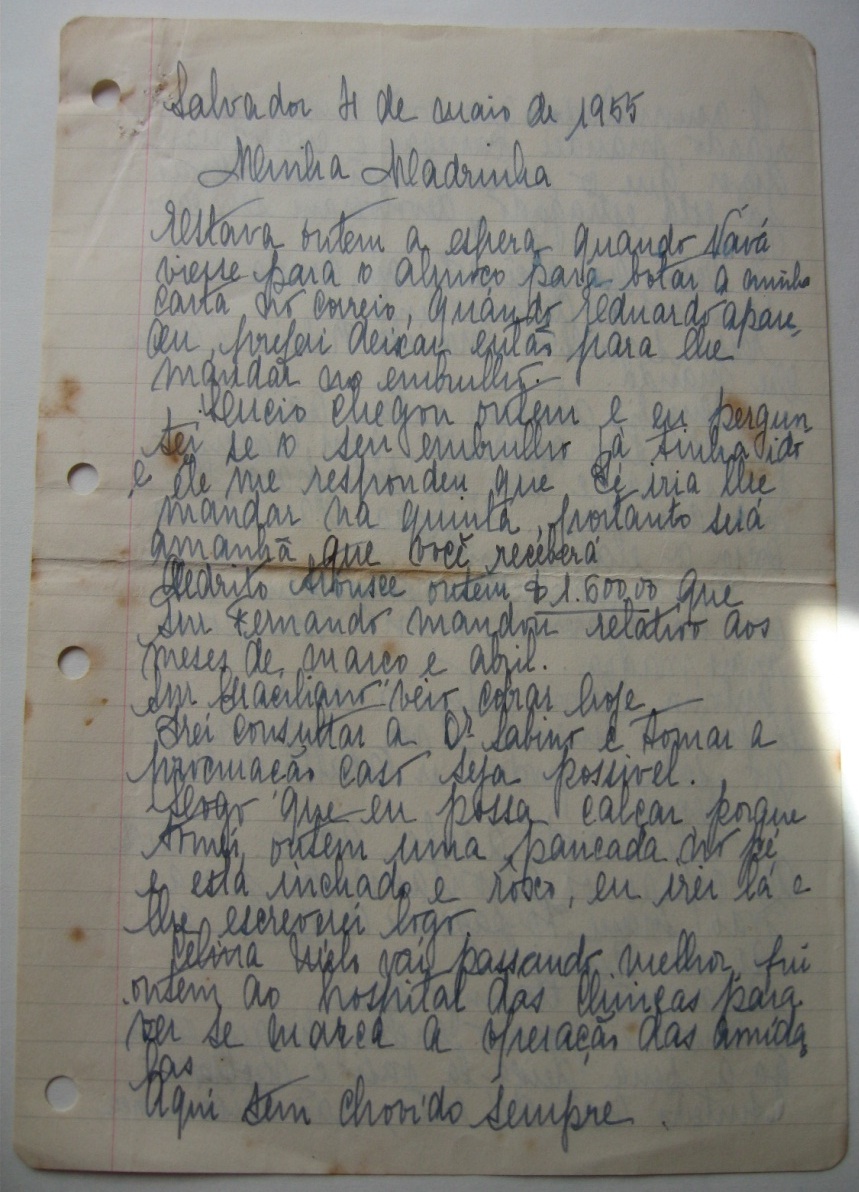 Salvador 4 de maio de 1955
Minha Madrinha
Estava ontem a espera quando Vává
viesse para o almoço para botar a minha
carta no correio, quando Eduardo apare-
ceu, preferi deixar então para lhe
mandar no embrulho.
Lucio chegou ontem e eu pergun
tei se o seu embrulho já tinha ido
e ele me respondeu que só iria lhe
mandar na quinta, portanto será
amanhã que você receberá
Pedrito trousce ontem $1.600,00 que
Snr Fernando mandou relativo aos
meses de março e abril.
Snr Graciliano veio cobrar hoje
Irei consultar a Dr Sabino e tomar a
procuração caso seja possivel.
Logo que eu possa calçar porque
tomei ontem uma pancada no pé
e está inchado e roxo, eu irei lá e
lhe escreverei logo.
Celina vai passando melhor, fui
ontem ao hospital das Clinicas para
ver se marca a operação das amida
las
Aqui tem chovido sempre.